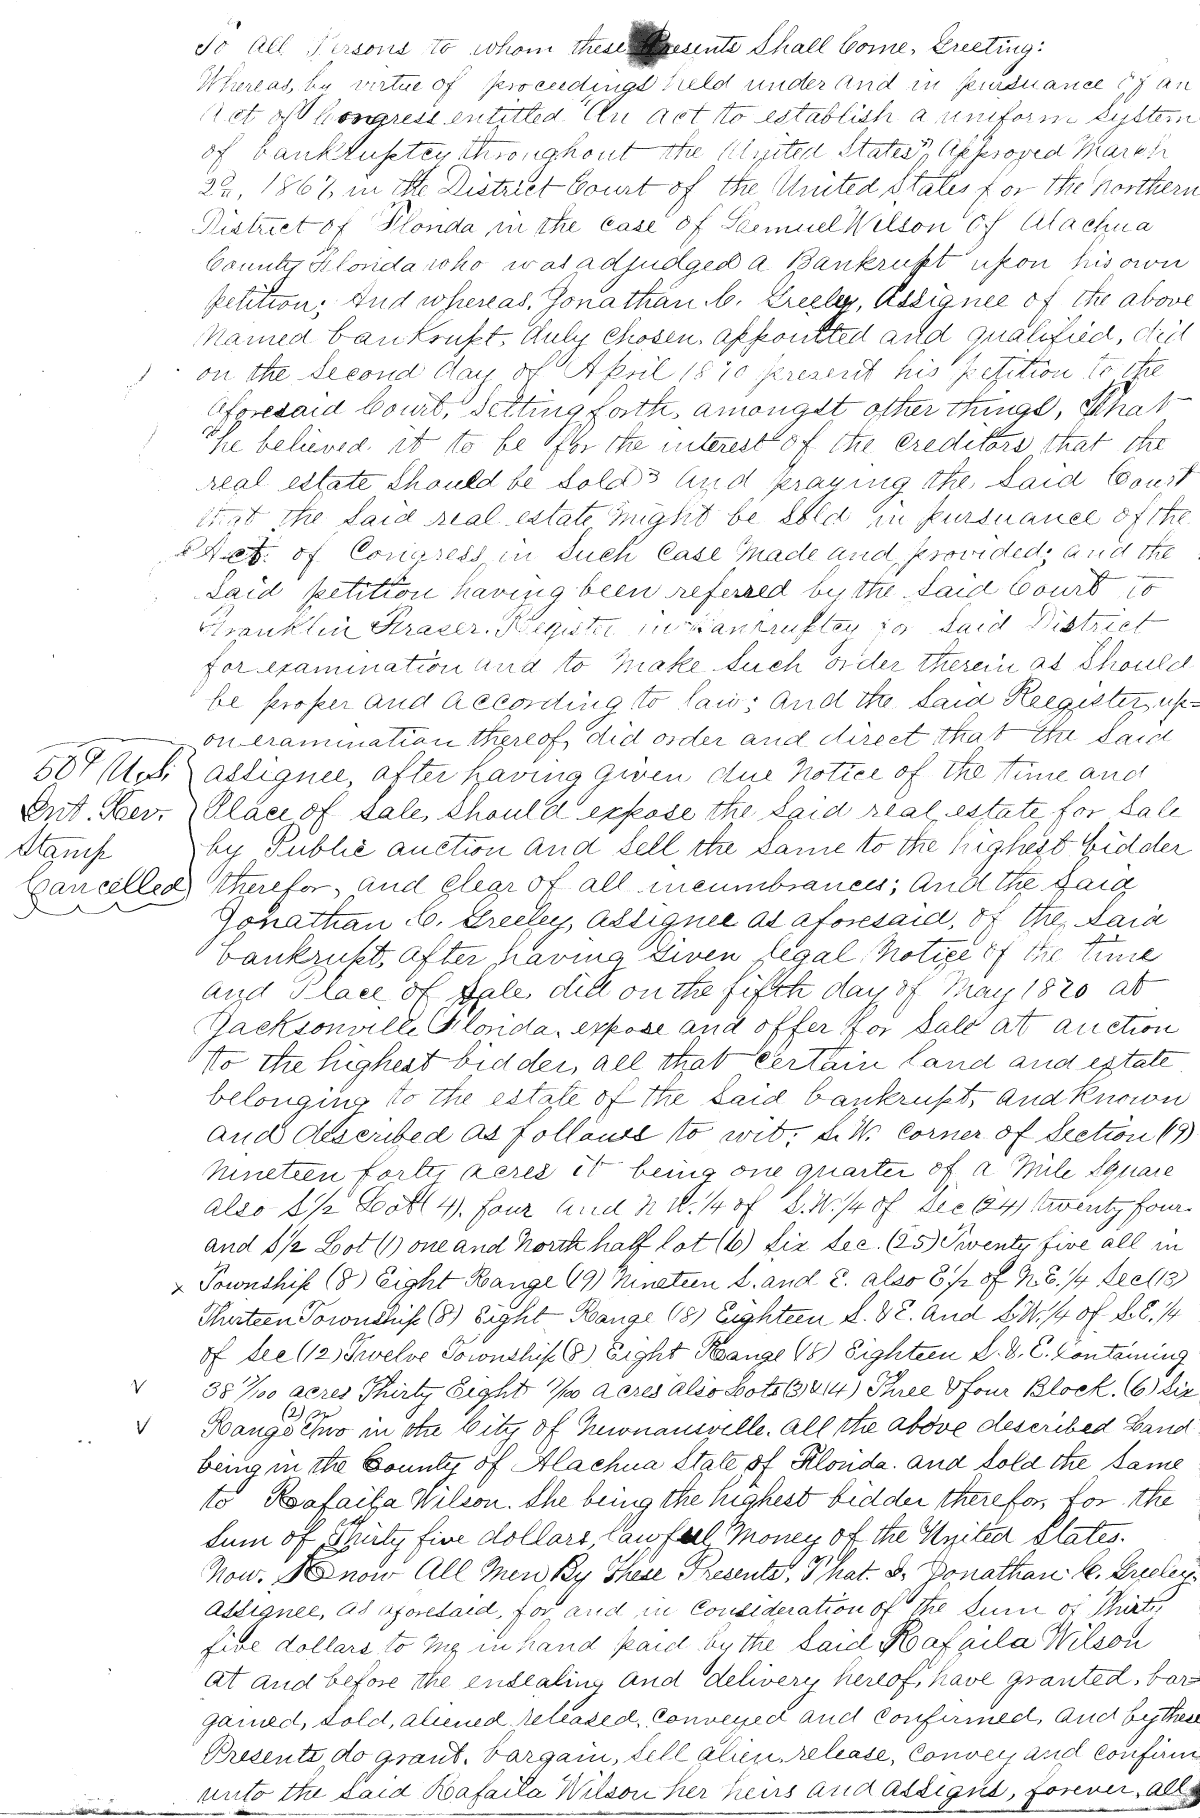 To All Persons to whom these Presents Shall Come, Greeting:
Whereas, by virtue of proceedings held under and in pursuance of an
Act of Congress entitled "An act to establish a uniform System
of bankruptcy throughout the United States", Approved March
2d, 1867, in the District Court of the United States for the Northern
District of Florida in the case of Samuel Wilson of Alachua
County Florida who was adjudged a Bankrupt upon his own
petition; And whereas, Jonathan C. Greeley, Assignee of the above
Named bankrupt, duly chosen, appointed and qualified, did
on the Second day of April 1870 present his petition to the
aforesaid Court, Setting forth, amongst other things, That
he believed it to be for the interest of the creditors that the
real estate Should be Sold; And praying the Said Court
that the Said real estate might be Sold in pursuance of the
Act of Congress, in Such Case Made and provided; and the
Said petition having been referred by the Said Court to
Franklin Fraser, Register in Bankruptcy for Said District
for examination and to Make Such order therein as Should
be proper and according to law; And the Said Reegister, up=
on examination thereof, did order and direct that the Said
50¢ U.S. assignee, after having given due Notice of the time and
Int. Rev. Place of Sale, Should expose the Said real estate for Sale
Stamp by Public auction and Sell the Same to the highest bidder
Cancelled therefor, and clear of all incumbrances; And the Said
Jonathan C. Greeley, assignee as aforesaid, of the Said
bankrupt, after having given legal Notice of the time
and Place of Sale, did on the fifth day of May 1870 at
Jacksonville Florida, expose and offer for Sale at auction
to the highest bidder, all that certain land and estate
belonging to the estate of the Said bankrupt, and known
and described as follows to wit; S.W. corner of Section (19)
Nineteen forty acres it being one quarter of a Mile Square
also S 1/2 Lot (4) four and N W. 1/4 of S.W. 1/4 of Sec (24) twenty four
and S 1/2 Lot (1) one and North half lot (6) Six Sec. (25) Twenty five all in
x Township (8) Eight Range (19) Nineteen S. and E. also E 1/2 of N.E. 1/4 Sec (13)
Thirteen Township (8) Eight Range (18) Eighteen S. & E. And S.W. 1/4 of S.E. 1/4
of Sec (12) Twelve Township (8) Eight Range (18) Eighteen S. & E. Containing
V 38 /100 acres Thirty Eight /100 acres also Lots (3) & (4) Three & four Block. (6) Six
V Range (2) Two in the City of Newnansville. all the above described Land
being in the County of Alachua State of Florida. and Sold the Same
to Rafaila Wilson. She being the highest bidder therefor, for the
Sum of Thirty five dollars, lawful Money of the United States.
Now. Know All Men By These Presents, That. I, Jonathan C. Greeley,
assignee, as aforesaid, for and in consideration of the Sum of Thirty
five dollars to Me in hand paid by the Said Rafaila Wilson
at and before the ensealing and delivery hereof, have granted, bar=
gained, Sold, aliened, released, conveyed and confirmed, and by these
Presents do grant, bargain, Sell alien, release, convey and confirm
unto the Said Rafaila Wilson her heirs and assigns, forever, all